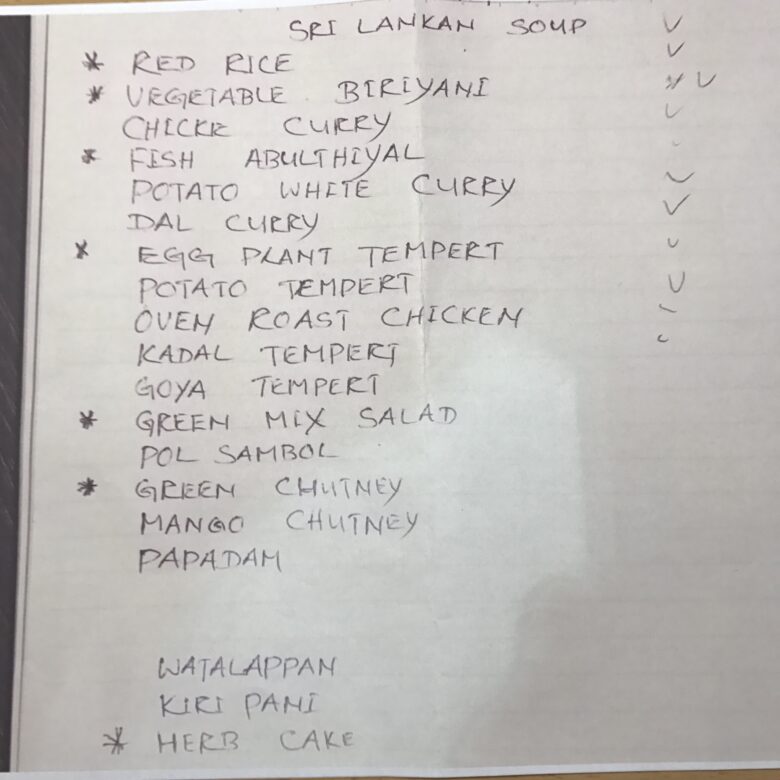 SRI LANKAN SOUP ✓
* RED RICE ✓
* VEGETABLE BIRIYANI * ✓
CHICKE CURRY ✓
* FISH ABULTHIYAL
POTATO WHITE CURRY ✓
DAL CURRY ✓
* EGG PLANT TEMPERT ✓
POTATO TEMPERT ✓
OVEN ROAST CHICKEN
KADAL TEMPERT
GOYA TEMPERT
* GREEN MIX SALAD
POL SAMBOL
* GREEN CHUTNEY
MANGO CHUTNEY
PAPADAM
WATALAPPAN
KIRI PANI
* HERB CAKE